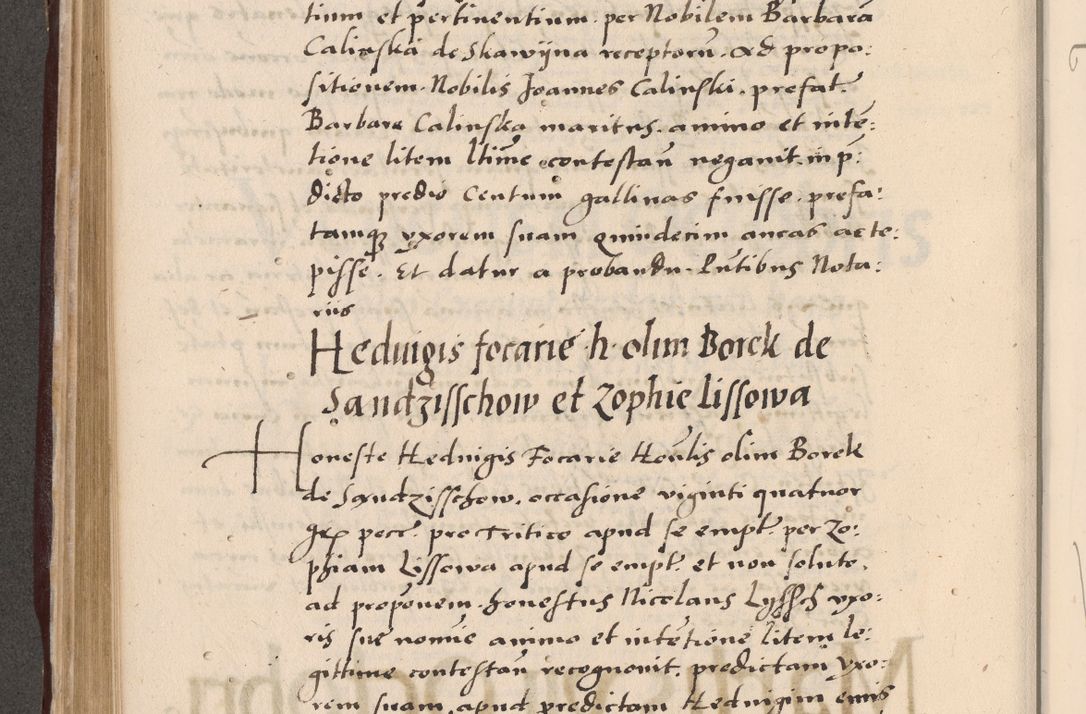 tium et pertinentium. per Nobilem Barbarā
Calinska de Skawijna receptorū. Ad propo:
sitionem. Nobilis Joannes Calinski. prefat:
Barbare Calinska maritus. animo et intē:
tione litem ltime contestaū negauit. in p̄:
dicto predio Centum gallinas fuisse. prefa:
tamq; vxorem suam quindecim ancas acte:
pisse. Et datur a probandu. Lutibus Nota:
riis
Heduigis focarie h. olim Borek de
Sandzisschow et Zophie Lissowa
Honeste Heduigis Focarie Hoūlis olim Borek
de Sandzisschow. occasione viginti quatuor
gr. pecc: pro Tritico apud se empt: per Zo:
phiam Lissowa apud se empt: et non solute.
ad proponem. honestus Nicolaus Lyssch vxo:
ris sue nomīe animo et intētione litem le:
gittime contestaū recognouit. predictam vxo:
rem suam. apud predictam Heduigim emis